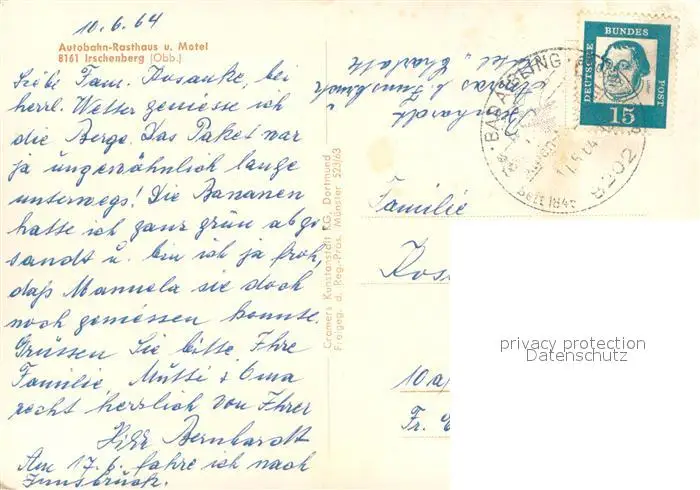 10.6.64
Autobahn-Rasthaus u. Motel
8161 Irschenberg (Obb.)
Liebe Fam. Kosanke, bei
herrl. Wetter geniesse ich
die Berge. Das Paket war
ja ungewöhnlich lange
unterwegs! Die Bananen
hatte ich ganz grün abge
sandt u. bin ich ja froh,
daß Manuela sie doch
noch geniessen konnte.
Grüssen Sie bitte Ihre
Familie, Mutti & Oma
recht herzlich von Ihrer
Bernhardt
Am 17.6. fahre ich nach
Innsbruck.
Cramers Kunstanstalt KG, Dortmund
Freigeg. d. Reg.-Präs. Münster 523/63
Bernhardt
b. Innsbruck
DEUTSCHE
BUNDES
POST
15
BAD AIBLING
seit 1845
8202
Familie
Kos
10 a/
Fr.
privacy protection
Datenschutz